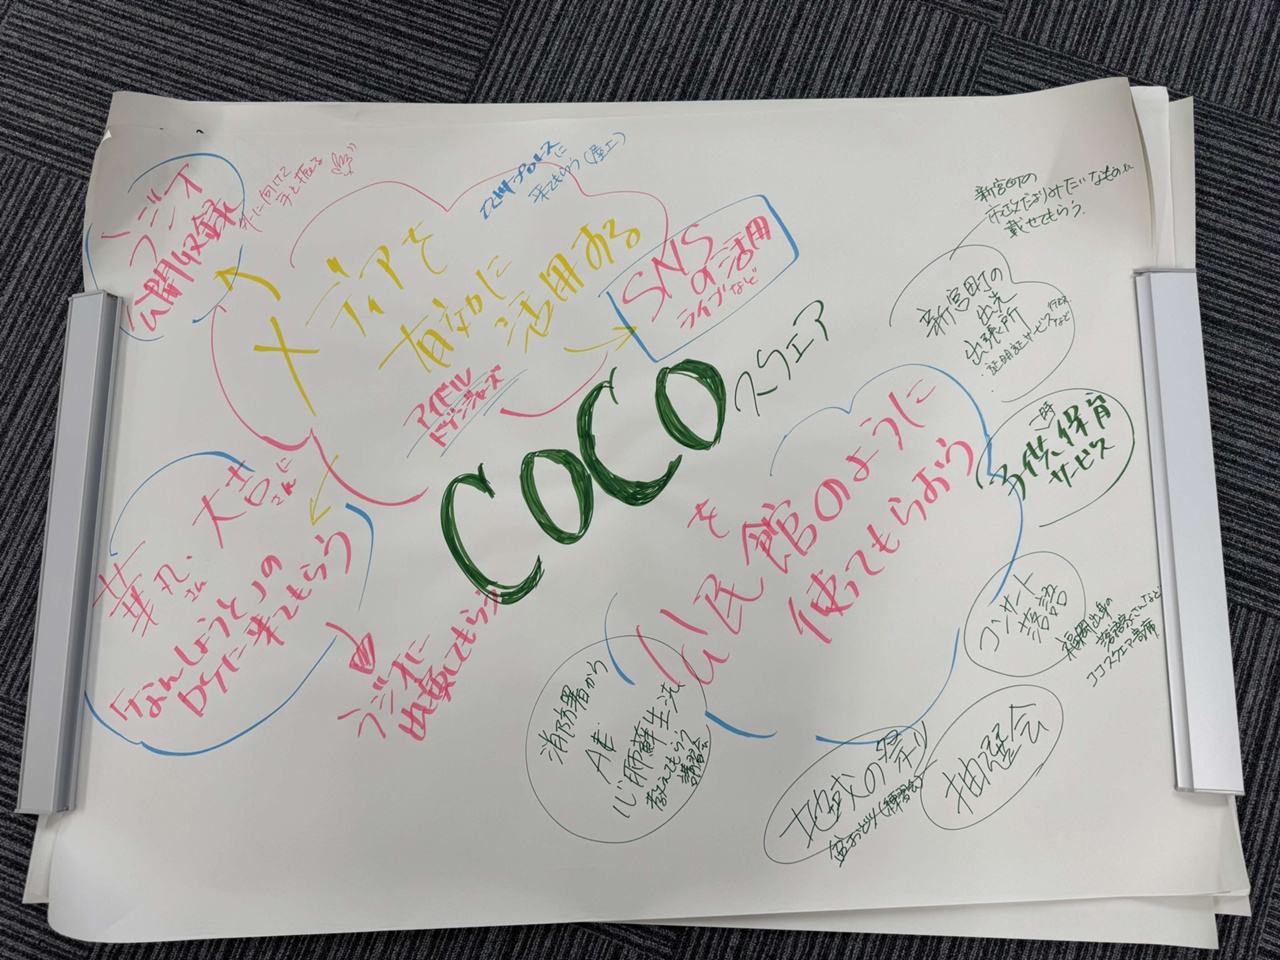 ラジオ
公開収録
外に向けて
手を振る
に
来てもらう(屋上)
メディアを
有効に
活用する
SNS
の活用
ライブなど
アイドル
ドゲンジャーズ
COCO
スクエア
華丸・大吉に
さん
さん
「なんしようと」の
ロケに来てもらう
ラジオに
出演してもらう
を
公民館のように
使ってもらおう
新宮町の
市政だよりみたいなものに
載せてもらう。
新宮町の
出先
出張所
・証明証サービスなど
行政
一時
子供保育
サービス
コンサート
落語
福岡出身の
落語家さんなど
ココスクエア寄席
抽選会
地域の祭り
盆おどり(練習会)
消防署から
AED
心肺蘇生法
教えてもらう
講習会